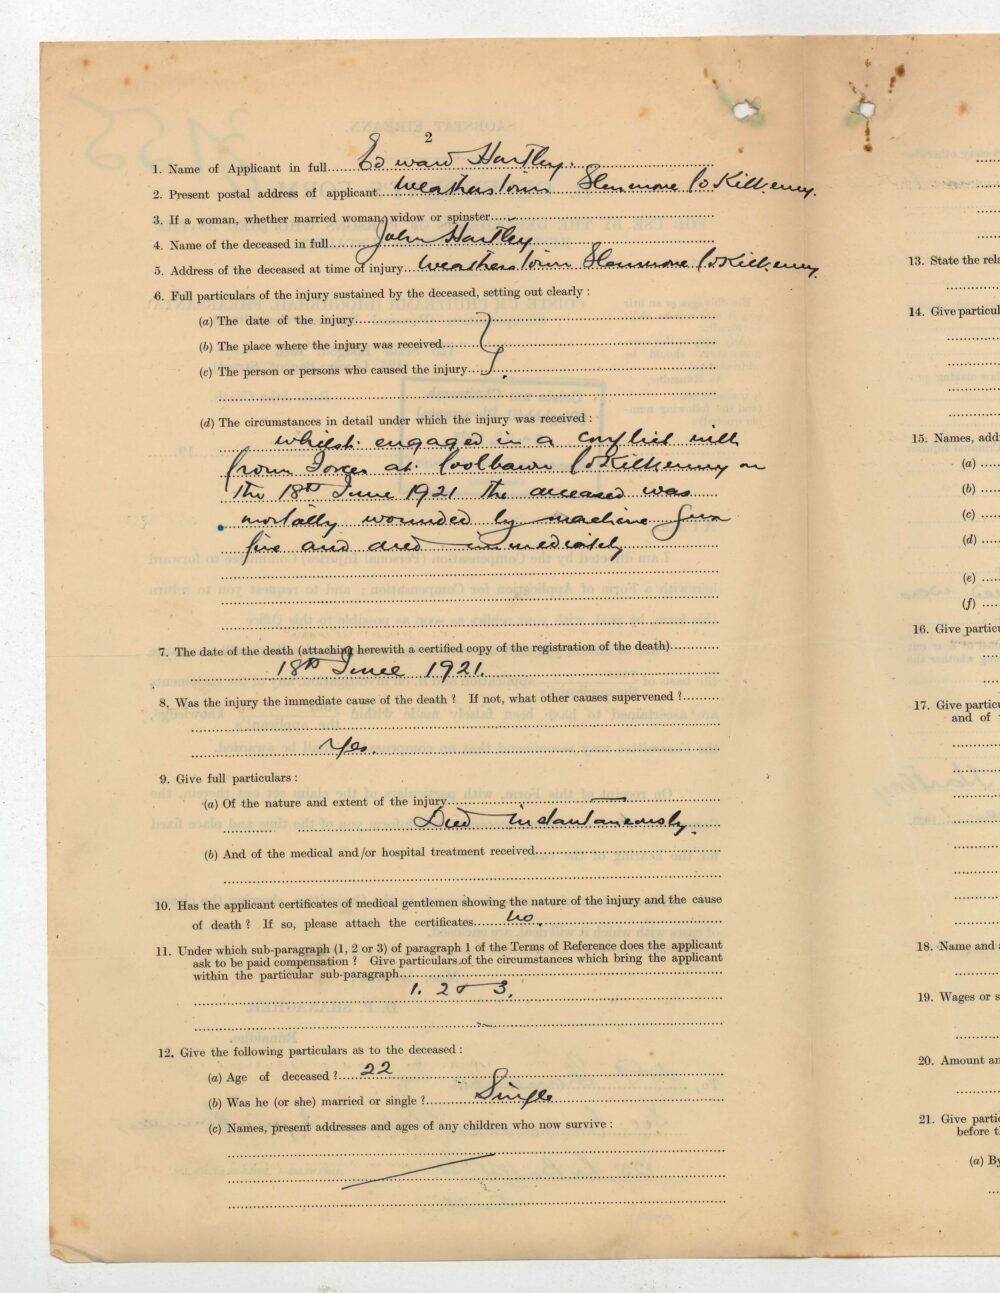 2
1. Name of Applicant in full Edward Hartley.
2. Present postal address of applicant Weatherstown Glenmore Co Kilkenny.
3. If a woman, whether married woman, widow or spinster
4. Name of the deceased in full John Hartley
5. Address of the deceased at time of injury Weatherstown Glenmore Co Kilkenny
6. Full particulars of the injury sustained by the deceased, setting out clearly :
(a) The date of the injury
(b) The place where the injury was received
(c) The person or persons who caused the injury
(d) The circumstances in detail under which the injury was received :
whilst engaged in a conflict with
Crown Forces at Coolbawn Co Kilkenny on
the 18th June 1921 the deceased was
mortally wounded by machine gun
fire and died immediately
7. The date of the death (attaching herewith a certified copy of the registration of the death)
18th June 1921.
8. Was the injury the immediate cause of the death ? If not, what other causes supervened ?
Yes.
9. Give full particulars :
(a) Of the nature and extent of the injury
Died instantaneously.
(b) And of the medical and/or hospital treatment received
10. Has the applicant certificates of medical gentlemen showing the nature of the injury and the cause
of death ? If so, please attach the certificates No.
11. Under which sub-paragraph (1, 2 or 3) of paragraph 1 of the Terms of Reference does the applicant
ask to be paid compensation ? Give particulars of the circumstances which bring the applicant
within the particular sub-paragraph
1. 2 & 3.
12. Give the following particulars as to the deceased :
(a) Age of deceased ? 22
(b) Was he (or she) married or single ? Single
(c) Names, present addresses and ages of any children who now survive :
13. State the
14. Give
15. Names,
(a)
(b)
(c)
(d)
(e)
(f)
16. Give
17. Give
and of
18. Name and
19. Wages or
20. Amount
21. Give
before
(a) By